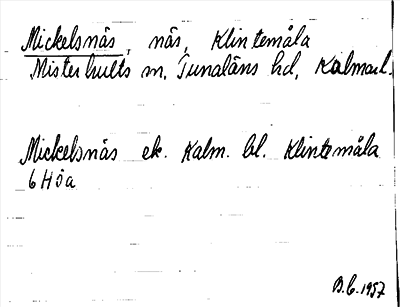 Mickelsnäs, näs, Klintemåla
Misterhults sn, Tunaläns hd, Kalmar l.
Mickelsnäs ek. Kalm. bl. Klintemåla
6 H ö a
B.C. 1957